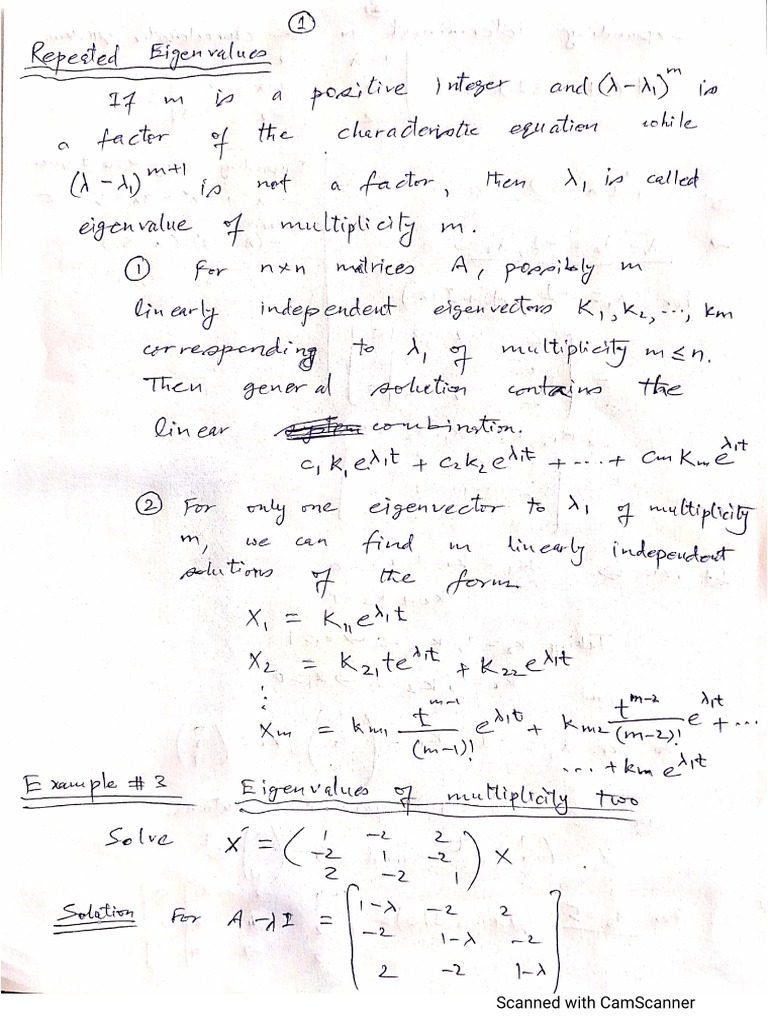 ①
Repeated Eigenvalues
If m is a positive integer and (λ-λ₁)ᵐ is
a factor of the characteristic equation while
(λ-λ₁)ᵐ⁺¹ is not a factor, then λ₁ is called
eigenvalue of multiplicity m.
① For n×n matrices A, possibly m
linearly independent eigenvectors K₁, K₂, ..., Km
corresponding to λ₁ of multiplicity m ≤ n.
Then general solution contains the
linear combination.
c₁ K₁ e^λ₁t + c₂ K₂ e^λ₁t + ... + cm Km e^λ₁t
② For only one eigenvector to λ₁ of multiplicity
m, we can find m linearly independent
solutions of the form
X₁ = K₁₁ e^λ₁t
X₂ = K₂₁ t e^λ₁t + K₂₂ e^λ₁t
⋮
Xm = Km₁ t^m-1/(m-1)! e^λ₁t + Km₂ t^m-2/(m-2)! e^λ₁t + ...
... + km e^λ₁t
Example # 3 Eigenvalues of multiplicity two
Solve X′ = ( 1 -2 2
-2 1 -2
2 -2 1 ) X
Solution For A-λI = [ 1-λ -2 2
-2 1-λ -2
2 -2 1-λ ]
Scanned with CamScanner